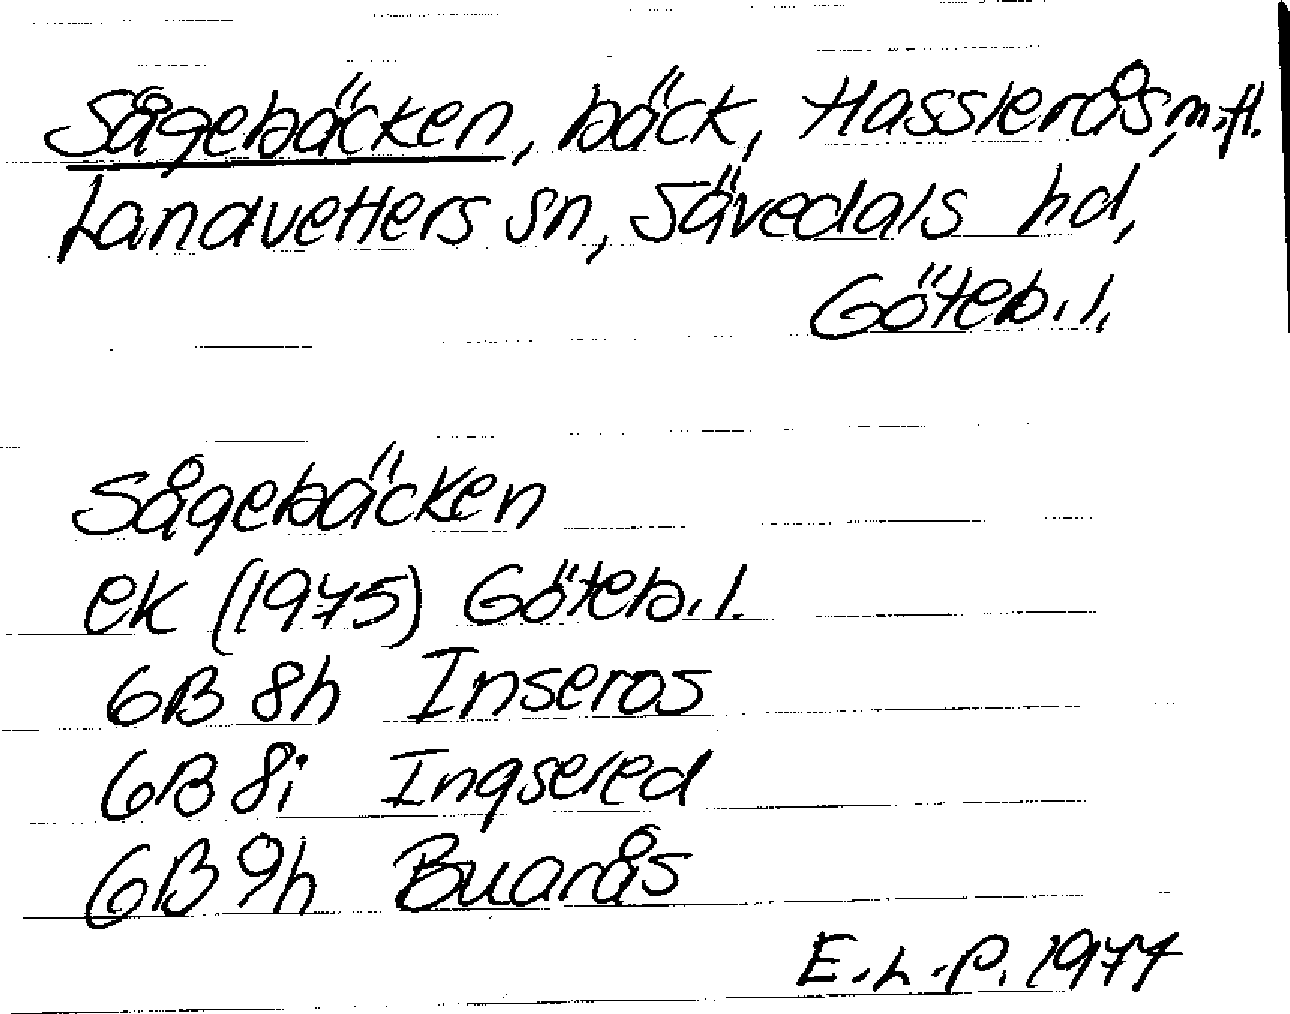 Sågebäcken, bäck, Hassleråsm.fl.
Landvetters sn, Sävedals hd,
Göteb.l.
Sågebäcken
ek (1975) Göteb.l.
6B 8h Inseros
6B 8i Ingsered
6B 9h Buarås
E.L.P. 1977